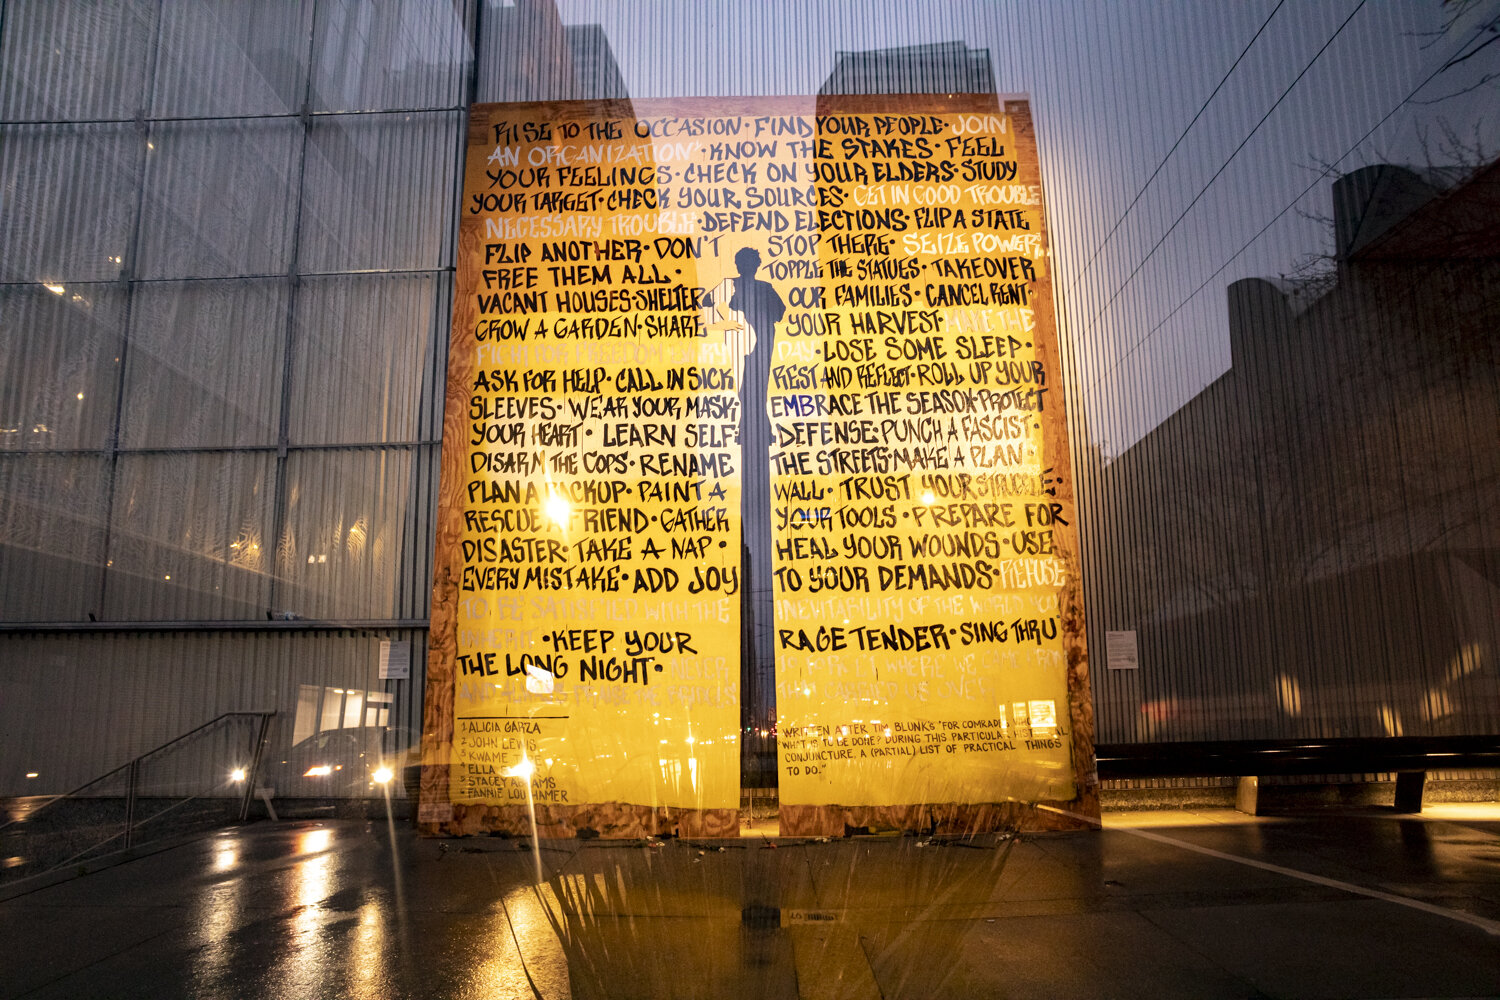 RISE TO THE OCCASION · FIND YOUR PEOPLE · JOIN
AN ORGANIZATION¹ · KNOW THE STAKES · FEEL
YOUR FEELINGS · CHECK ON YOUR ELDERS · STUDY
YOUR TARGET · CHECK YOUR SOURCES · GET IN GOOD TROUBLE
NECESSARY TROUBLE · DEFEND ELECTIONS · FLIP A STATE
FLIP ANOTHER · DON'T STOP THERE · SEIZE POWER
FREE THEM ALL · TOPPLE THE STATUES · TAKEOVER
VACANT HOUSES · SHELTER OUR FAMILIES · CANCEL RENT ·
GROW A GARDEN · SHARE YOUR HARVEST · MAKE THE
FIGHT FOR FREEDOM EVERY DAY · LOSE SOME SLEEP ·
ASK FOR HELP · CALL IN SICK REST AND REFLECT · ROLL UP YOUR
SLEEVES · WEAR YOUR MASK · EMBRACE THE SEASON · PROTECT
YOUR HEART · LEARN SELF DEFENSE · PUNCH A FASCIST ·
DISARM THE COPS · RENAME THE STREETS · MAKE A PLAN ·
PLAN A BACKUP · PAINT A WALL · TRUST YOUR STRUGGLE ·
RESCUE A FRIEND · GATHER YOUR TOOLS · PREPARE FOR
DISASTER · TAKE A NAP · HEAL YOUR WOUNDS · USE
EVERY MISTAKE · ADD JOY TO YOUR DEMANDS · REFUSE
TO BE SATISFIED WITH THE INEVITABILITY OF THE WORLD YOU
INHERIT · KEEP YOUR RAGE TENDER · SING THRU
THE LONG NIGHT · NEVER TO FORGET WHERE WE CAME FROM
AND ALWAYS PRAISE THE BRIDGES THAT CARRIED US OVER
1 ALICIA GARZA
2 JOHN LEWIS
3 KWAME
4 ELLA
5 STACEY ABRAMS
6 FANNIE LOU HAMER
WRITTEN AFTER TIM BLUNK'S "FOR COMRADES WHO
"WHAT IS TO BE DONE? DURING THIS PARTICULAR HISTORICAL
CONJUNCTURE. A (PARTIAL) LIST OF PRACTICAL THINGS
TO DO."